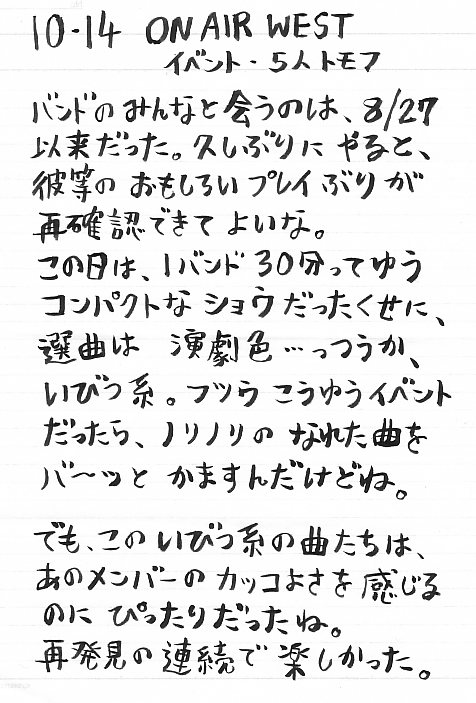 10・14 ON AIR WEST
イベント・5人トモフ
バンドのみんなと会うのは、8/27
以来だった。久しぶりに やると、
彼等の おもしろい プレイぶりが
再確認できて よいな。
この日は、1バンド 30分ってゆう
コンパクトな ショウだったくせに、
選曲は 演劇色…っつうか、
いびつ系。フツウ こうゆうイベント
だったら、ノリノリの なれた曲を
バ〜ッと かますんだけどね。
でも、このいびつ系の曲たちは、
あのメンバーの カッコよさを 感じる
のに ぴったりだったね。
再発見の連続で 楽しかった。